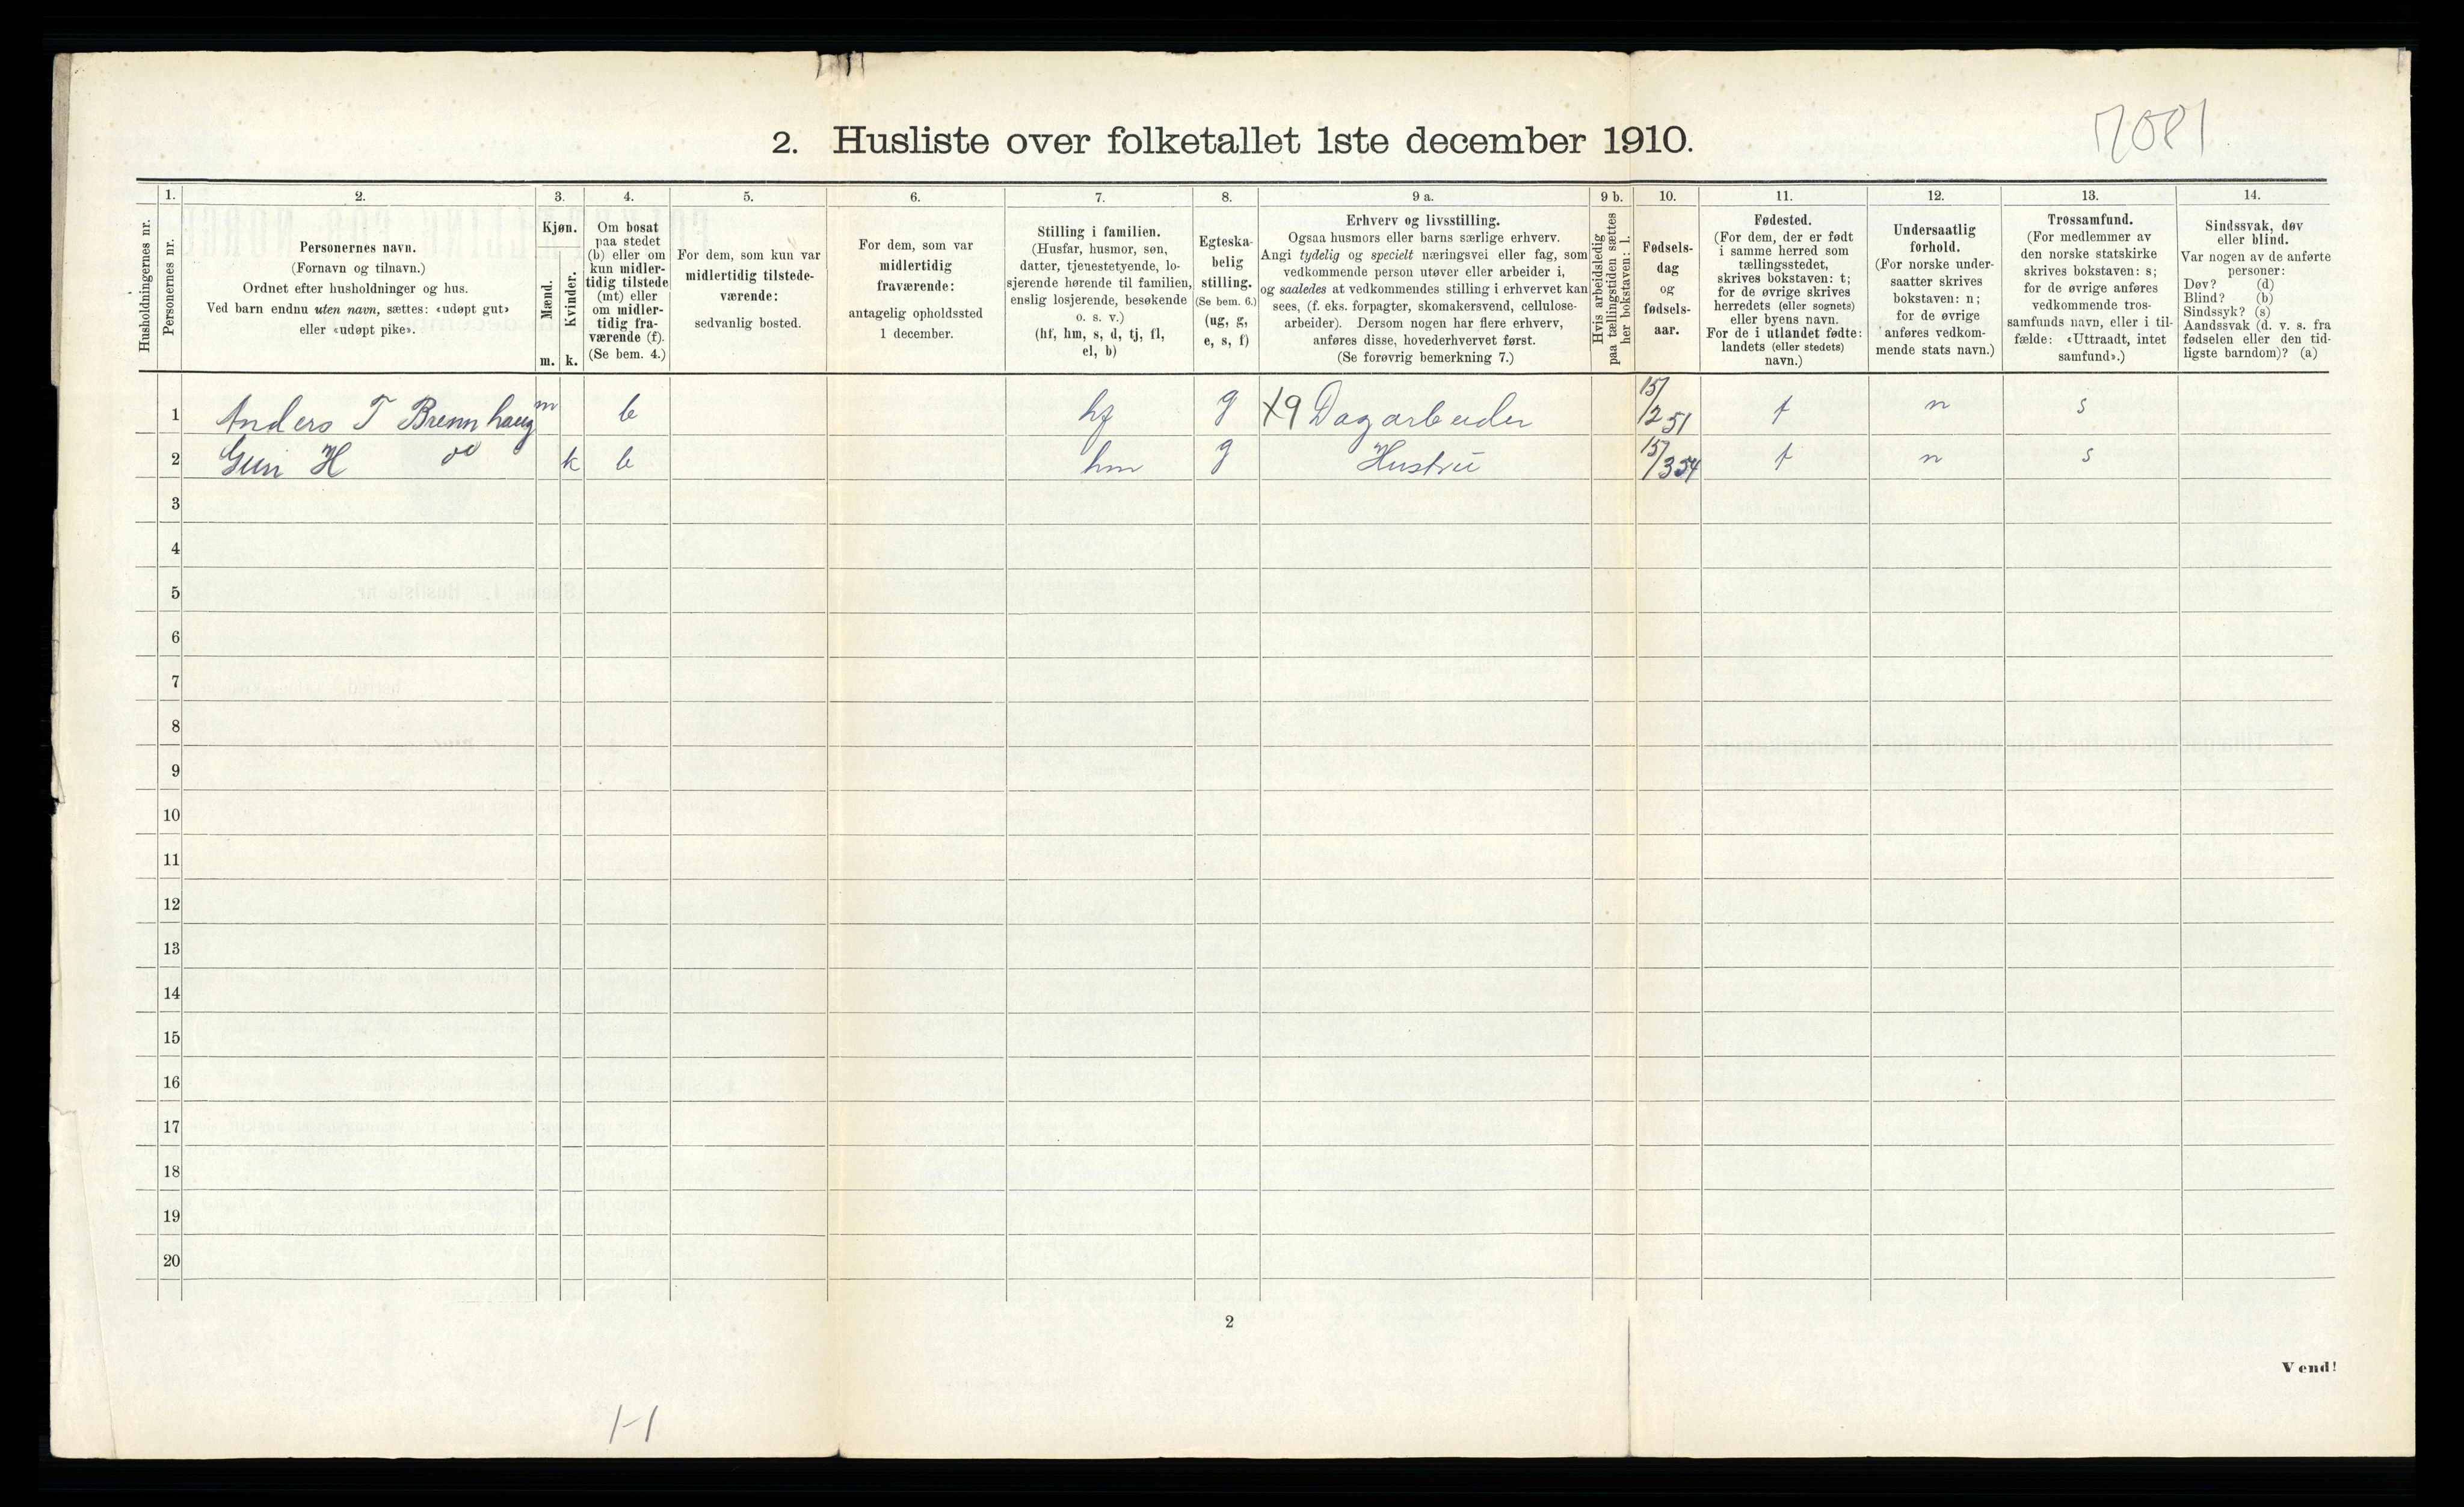 2. Husliste over folketallet 1ste december 1910.
7081
Husholdningernes nr.
1.
Personernes nr.
2.
Personernes navn.
(Fornavn og tilnavn.)
Ordnet efter husholdninger og hus.
Ved barn endnu uten navn, sættes: «udøpt gut»
eller «udøpt pike».
3.
Kjøn.
Mænd.
Kvinder.
m. k.
4.
Om bosat
paa stedet
(b) eller om
kun midler-
tidig tilstede
(mt) eller
om midler-
tidig fra-
værende (f).
(Se bem. 4.)
5.
For dem, som kun var
midlertidig tilstede-
værende:
sedvanlig bosted.
6.
For dem, som var
midlertidig
fraværende:
antagelig opholdssted
1 december.
7.
Stilling i familien.
(Husfar, husmor, søn,
datter, tjenestetyende, lo-
sjerende hørende til familien,
enslig losjerende, besøkende
o. s. v.)
(hf, hm, s, d, tj, fl,
el, b)
8.
Egteska-
belig
stilling.
(Se bem. 6.)
(ug, g,
e, s, f)
9 a.
Erhverv og livsstilling.
Ogsaa husmors eller barns særlige erhverv.
Angi tydelig og specielt næringsvei eller fag, som
vedkommende person utøver eller arbeider i,
og saaledes at vedkommendes stilling i erhvervet kan
sees, (f. eks. forpagter, skomakersvend, cellulose-
arbeider). Dersom nogen har flere erhverv,
anføres disse, hovederhvervet først.
(Se forøvrig bemerkning 7.)
9 b.
Hvis arbeidsledig
paa tællingstiden sættes
her bokstaven: l.
10.
Fødsels-
dag
og
fødsels-
aar.
11.
Fødested.
(For dem, der er født
i samme herred som
tællingsstedet,
skrives bokstaven: t;
for de øvrige skrives
herredets (eller sognets)
eller byens navn.
For de i utlandet fødte:
landets (eller stedets)
navn.)
12.
Undersaatlig
forhold.
(For norske under-
saatter skrives
bokstaven: n;
for de øvrige
anføres vedkom-
mende stats navn.)
13.
Trossamfund.
(For medlemmer av
den norske statskirke
skrives bokstaven: s;
for de øvrige anføres
vedkommende tros-
samfunds navn, eller i til-
fælde: «Uttraadt, intet
samfund».)
14.
Sindssvak, døv
eller blind.
Var nogen av de anførte
personer:
Døv? (d)
Blind? (b)
Sindssyk? (s)
Aandssvak (d. v. s. fra
fødselen eller den tid-
ligste barndom)? (a)
1 Anders T Brennhaug m b hf g X9 Dagarbeider 15/12 51 t n s
2 Guri H do k b hm g Hustru 15/3 54 t n s
3
4
5
6
7
8
9
10
11
12
13
14
15
16
17
18
19
20
2
Vend!
1-1